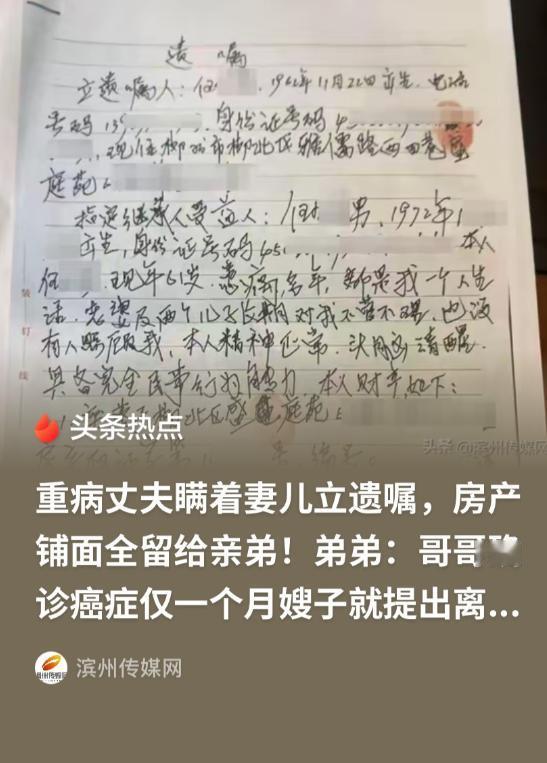 遗嘱
立遗嘱人：任 1962年11月22日出生，电话
号码15 身份证号码4
现住柳州市柳北区雅儒路西四巷盛
庭苑
指定继承人受益人：任 男，1972年1
出生，身份证号码45 本人
任 现年61岁，患病多年，都是我一个人生
活，老婆及两个儿子长期对我不管不理，也没
有人照顾我，本人精神正常，头脑清醒，
具备完全民事行为能力，本人财产如下：
北区盛 庭苑
装订线
头条热点
头条@滨州传媒网
重病丈夫瞒着妻儿立遗嘱，房产
铺面全留给亲弟！弟弟：哥哥确
诊癌症仅一个月嫂子就提出离...
滨州传媒网